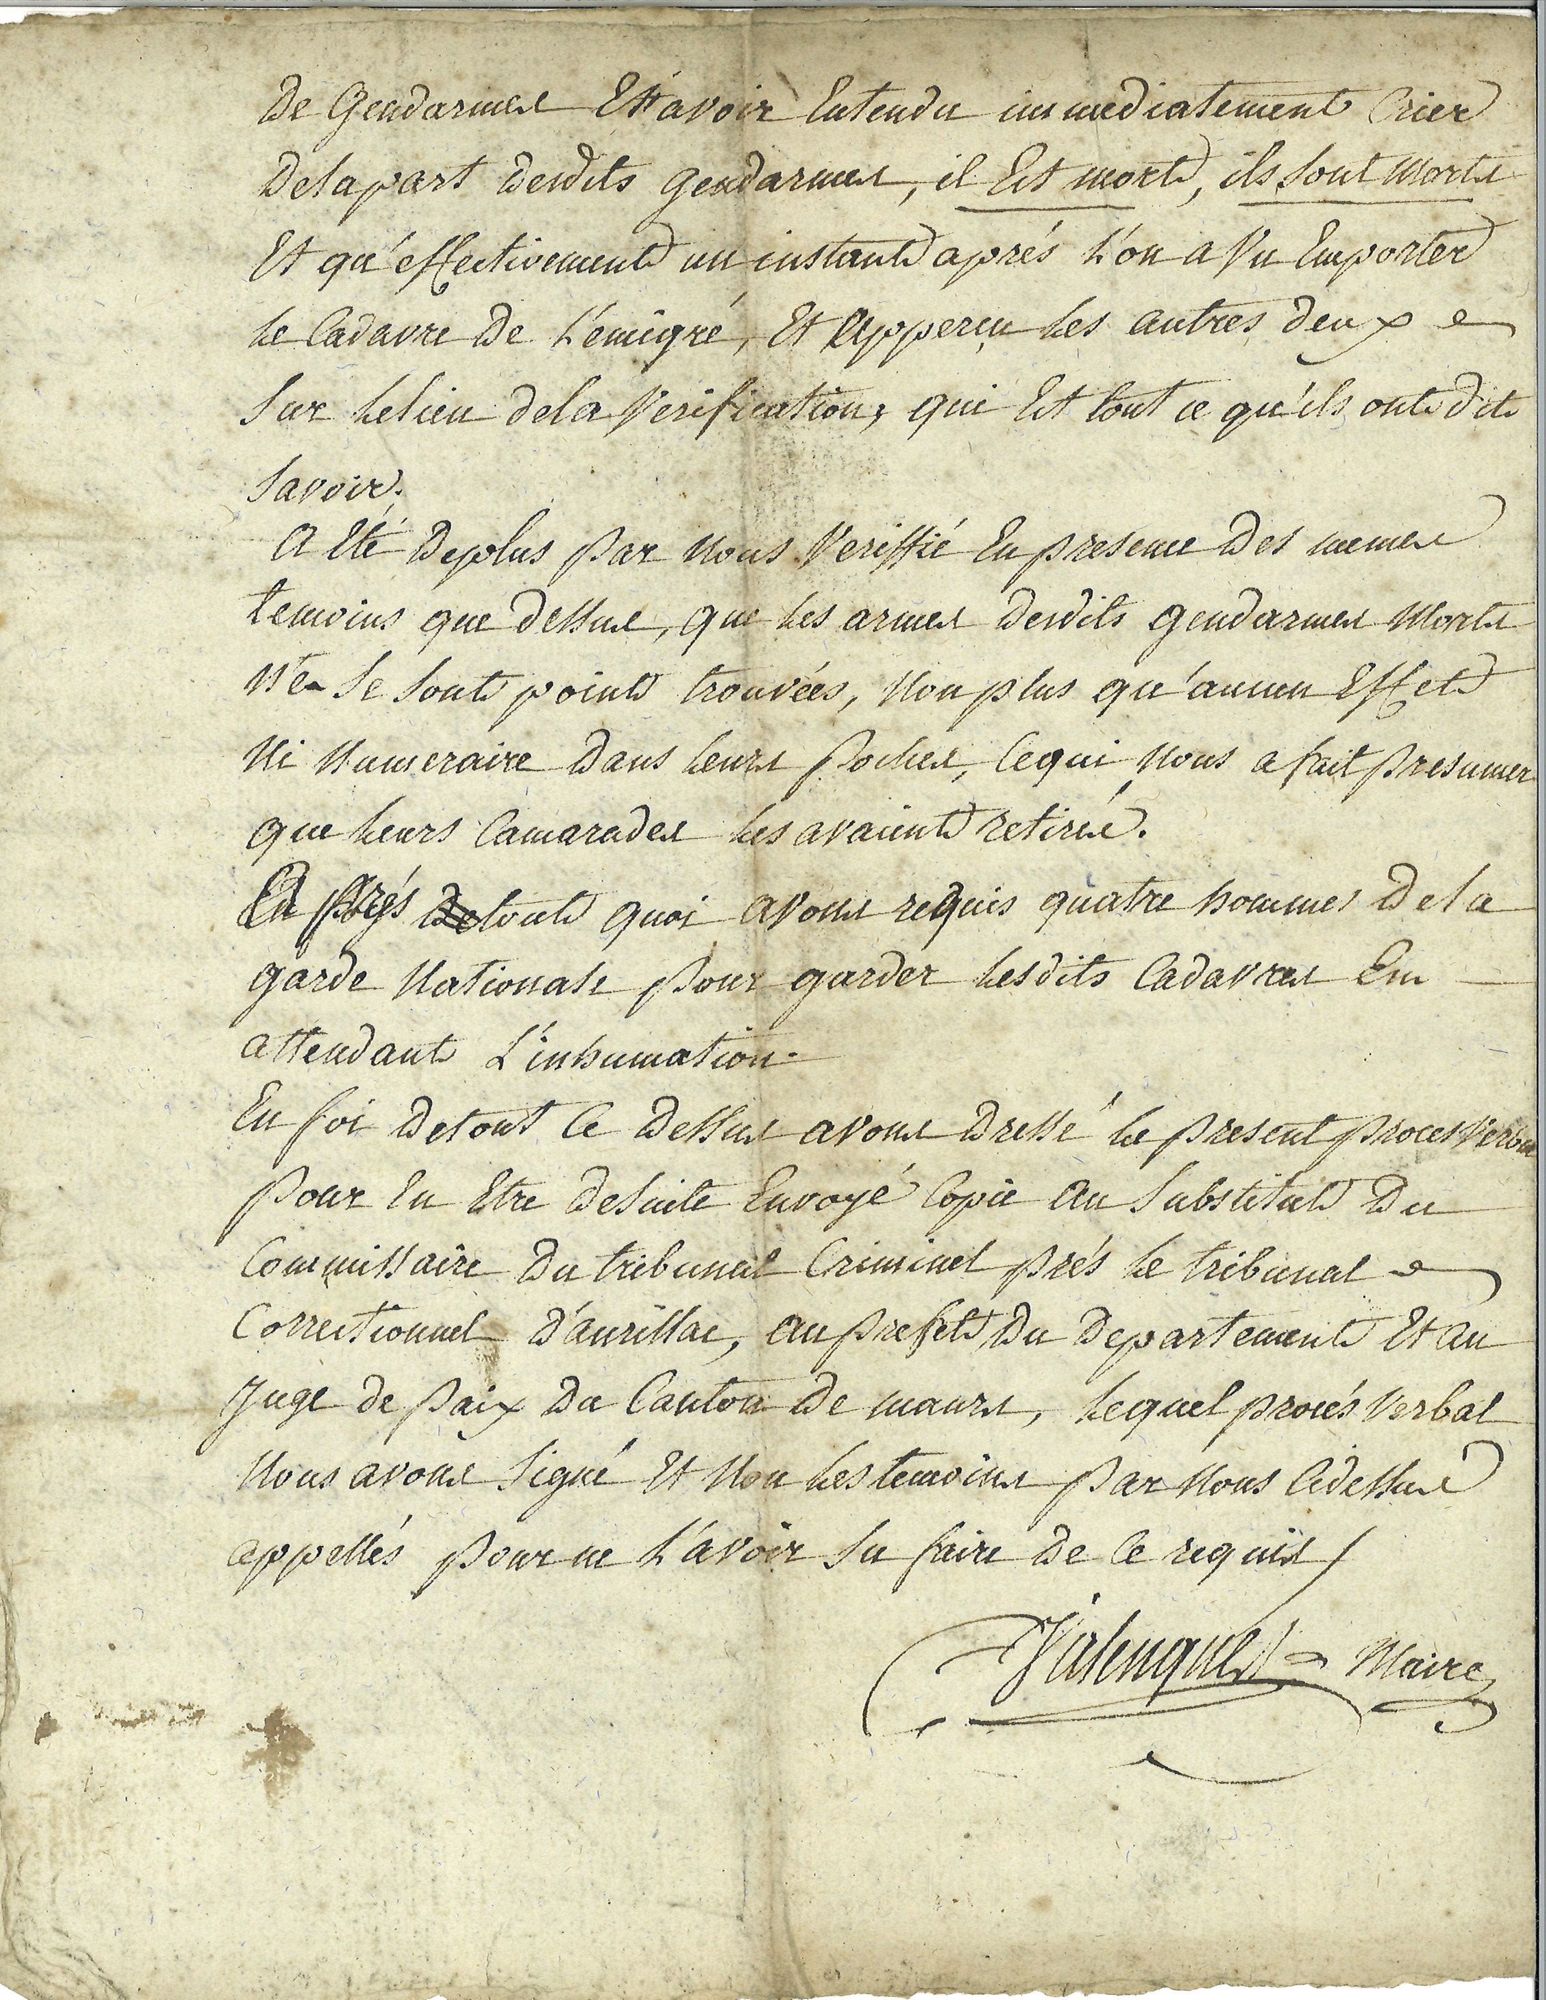 De Gendarmes Et avoir Entendu immediatement Crier
Delapart desdits gendarmes, il Est mort, ils sont Morts
Et qu'effectivement un instant aprés L'on a Vu Emporter
Le Cadavre De L'émigré, Et apperçu Les autres deux
Sur Lelieu dela Verification, qui Est tout ce qu'ils ont dit
Savoir.
A Eté Deplus par Nous Veriffié En presence Des memes
temoins que dessus, que Les armes desdits gendarmes Morts
Ne se sont point trouvées, Non plus qu'aucun Effet
Ni Numeraire dans Leurs Poches, Cequi Nous a fait presumer
que Leurs Camarades Les avaient retiré.
Aprés tout quoi avons requis quatre hommes Dela
garde Nationale pour garder Lesdits Cadavres En
attendant L'inhumation.
En foi Detout Ce Dessus avons Dressé Le present procesVerbal
pour En Etre desuite Envoyé Copie au Substitut Du
Commissaire Du tribunal Criminel prés Le tribunal
Correctionnel D'aurillac, au prefet Du Departement Et au
Juge de paix Du Canton De maurs, Lequel procés Verbal
Nous avons Signé Et Non Les temoins par Nous Cidessus
appellés pour ne L'avoir Su faire De Ce requis /
Maire